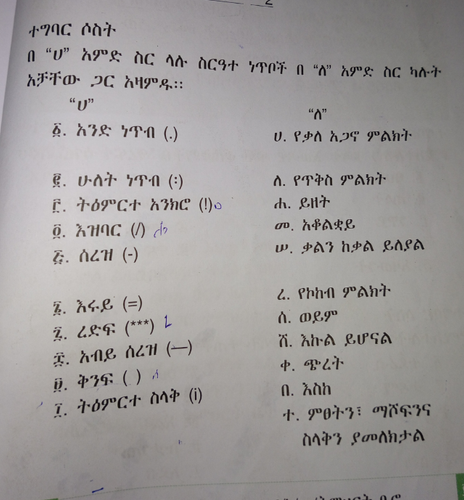 ተግባር ሶስት
በ “ሀ” አምድ ስር ላሉ ስርዓተ ነጥቦች በ “ለ” አምድ ስር ካሉት
አቻቸው ጋር አዛምዱ፡፡
“ሀ”
“ለ”
፩. አንድ ነጥብ (.)
ሀ. የቃለ አጋኖ ምልክት
፪. ሁለት ነጥብ (:)
ለ. የጥቅስ ምልክት
፫. ትዕምርተ አንክሮ (!)
ሐ. ይዘት
፬. እዝባር (/)
መ. አቆልቋይ
፭. ሰረዝ (-)
ሠ. ቃልን ከቃል ይለያል
፮. እሩይ (=)
ረ. የኮከብ ምልክት
፯. ረድፍ (***)
ሰ. ወይም
፰. አብይ ሰረዝ (—)
ሸ. እኩል ይሆናል
፱. ቅንፍ ( )
ቀ. ጭረት
፲. ትዕምርተ ስላቅ (i)
በ. እስከ
ተ. ምፀትን፣ ማሾፍንና
ስላቅን ያመለክታል